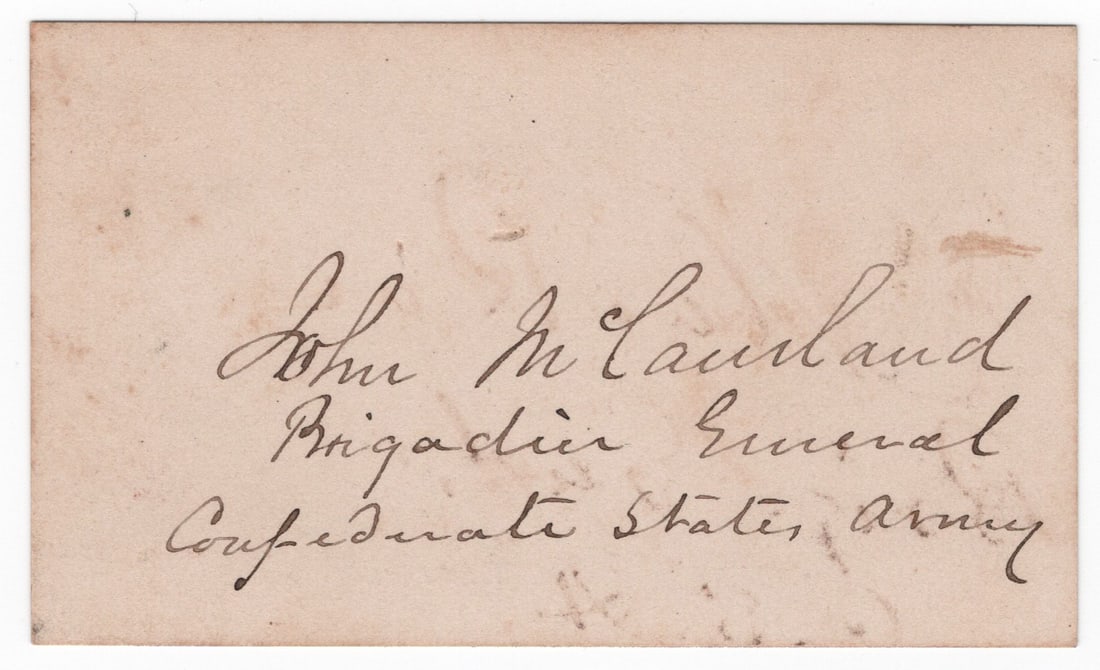 John McCausland
Brigadier General
Confederate States Army